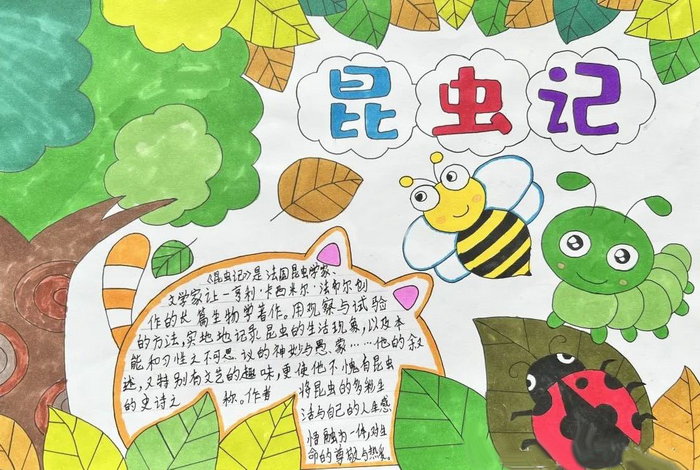 昆虫记
《昆虫记》是法国昆虫学家、
文学家让-亨利·卡西米尔·法布尔创
作的长篇生物学著作。用观察与试验
的方法,实地地记录昆虫的生活现象,以及本
能和习性之不可思议的神妙与愚、蒙……他的叙
述,又特别有文艺的趣味,更使他不愧有昆虫
的史诗之 称。作者 将昆虫的多彩生
活与自己的人生感
悟融为一体,对生
命的尊敬与热爱。